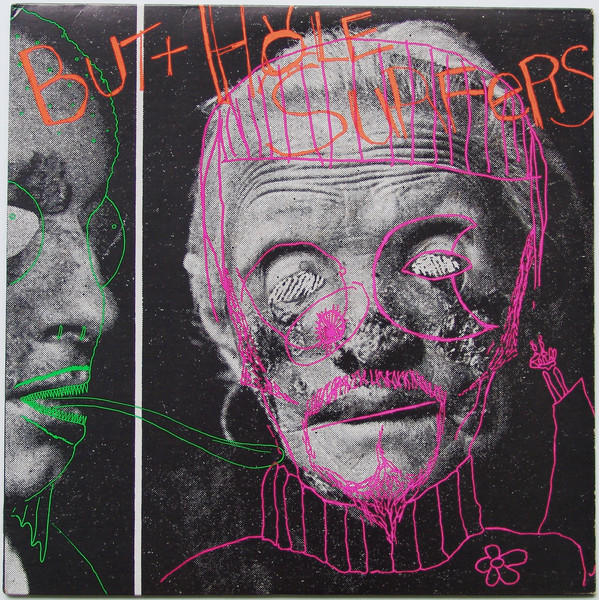 BUT+ HOLE
SURFERS